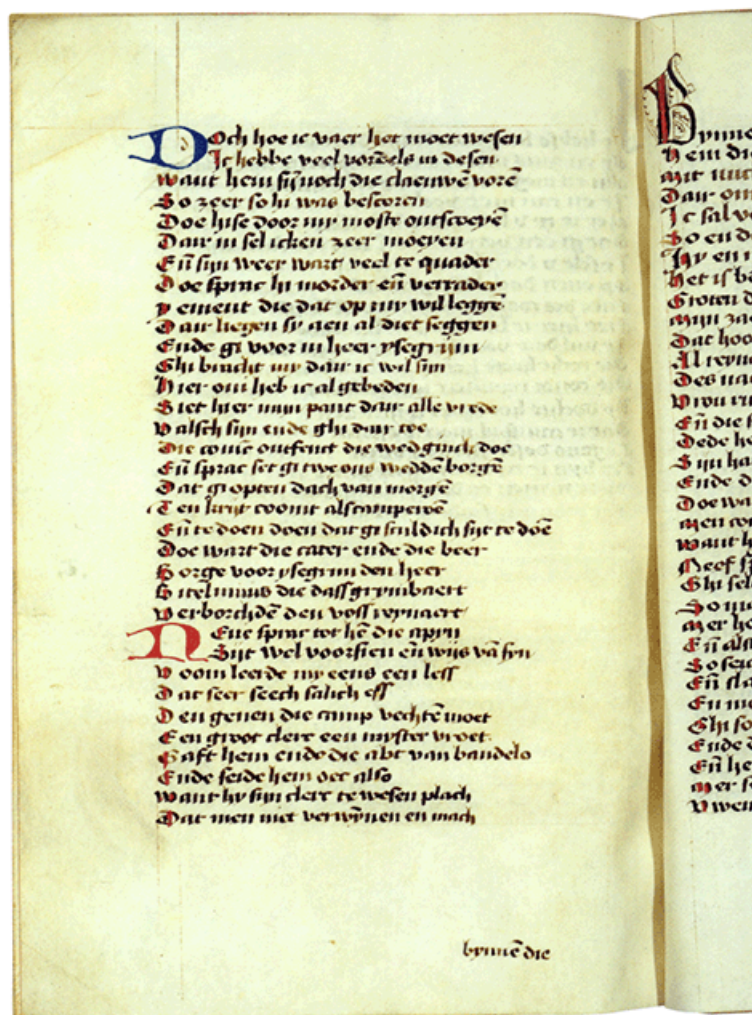 Doch hoe ic vaer het moet wesen
Ic hebbe veel vordels in desen
Want hem sijn noch die claeuwē vorē
So zeer so hi was bescoren
Doe hise door my moste ontscoeyē
Dair in sel icken zeer moeyen
Eñ sijn weer wart veel te quader
Doe sprac hi morder eñ verrader
yement die dat op my wil leggē
Dair liegen sy aen al diet seggen
Ende gi voor in heer ysegrijm
Ghi bracht my dair ic wil sijn
Hier om heb ic al gebeden
Siet hier mijn pant dair alle vrede
Valsch sijn ende ghi dair toe
Die coninc ontfenc die wedginch doe
Eñ sprac set gi twe ons weddē borgē
Dat gi opten dach van morgē
Ten krijt coomt als campewē
Eñ te doen doen dat gi sculdich sijt te doē
Doe wart die cater ende die beer
Borge voor ysegrim den heer
Bitelmuus die dass grymbaert
Verborchdē den voss reynaert
Neue sprac tot hē die apyn
Sijt wel voorsien eñ wijs vā syn
V oom leerde my eens een less
Dat seer seech salich ess
Den genen die camp vechtē moet
Een groot clerc een myster vroet
Gaft hem ende die abt van baudelo
Ende seide hem oec also
Want hy sijn clerc te wesen plach
Dat men niet verwȳnen en mach
bynnē die
Hem die
Dair om
Ic sal
So en
Het is
Groten
Mijn
Dat
Al
Des
Vrou
Eñ die
Dede
Sijn
Ende
Doe
Men
Want
Ghi
So
Mer
Eñ
Ghi
Ende
Eñ
Mer